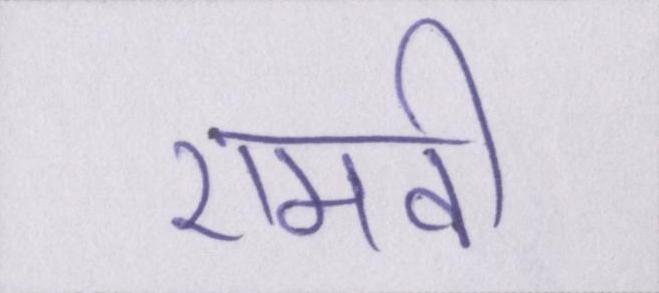 रामवी